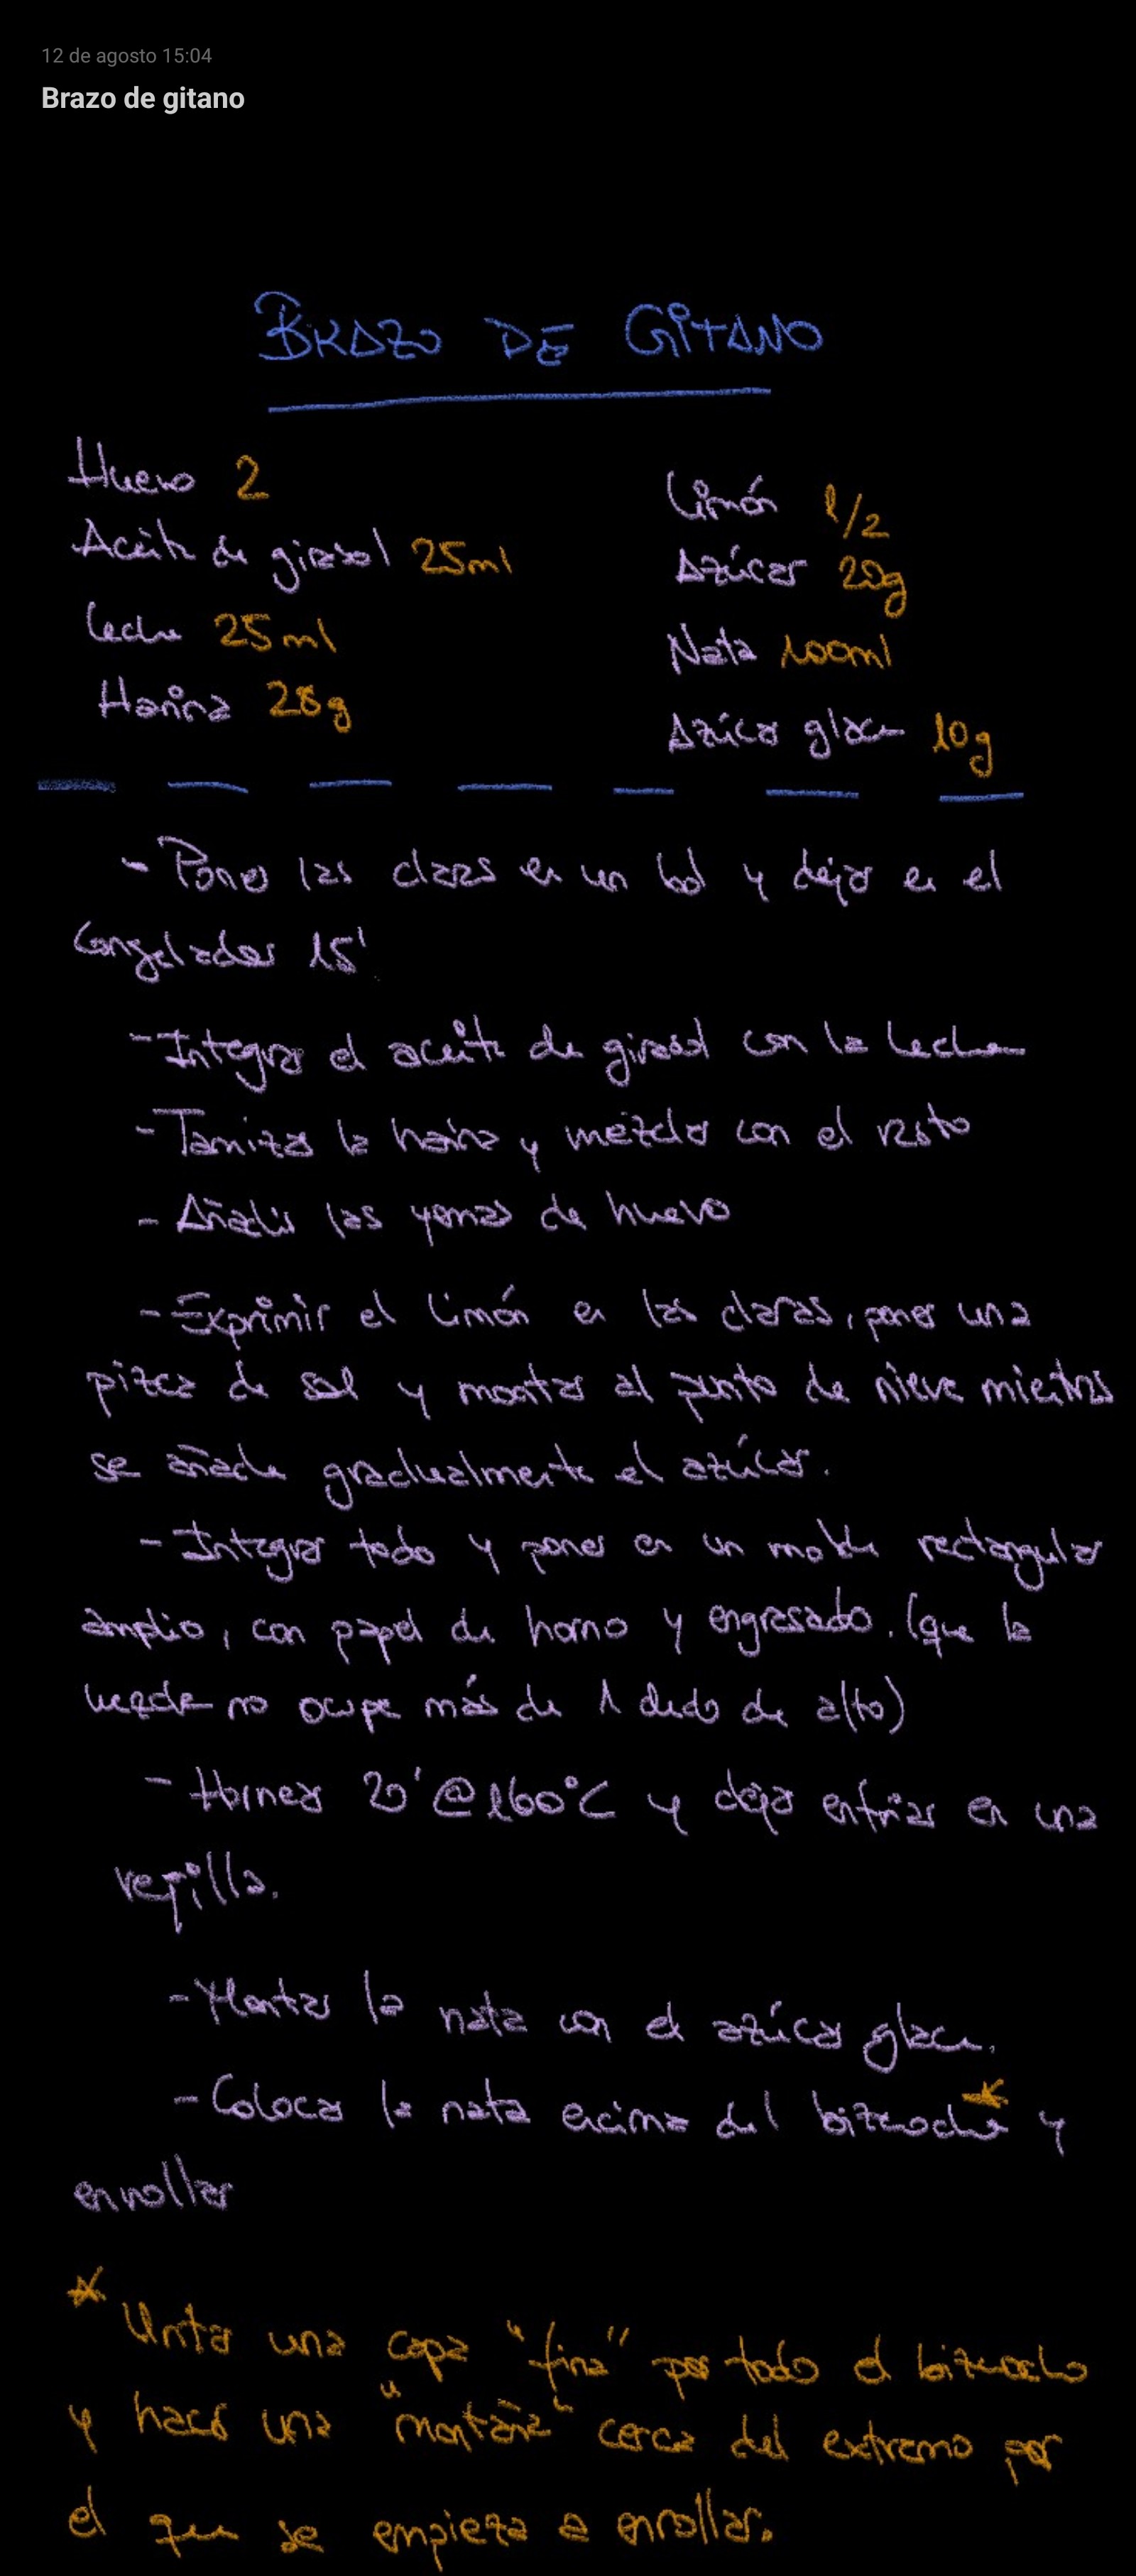 12 de agosto 15:04
Brazo de gitano
BRAZO DE GITANO
Huevo 2
Aceite de girasol 25ml
Leche 25ml
Harina 28g
Limón 1/2
Azúcar 20g
Nata 100ml
Azúcar glace 10g
- Poner las claras en un bol y dejar en el
congelador 15'
- Integrar el aceite de girasol con la leche
- Tamizar la harina y mezclar con el resto
- Añadir las yemas de huevo
- Exprimir el limón en las claras, poner una
pizca de sal y montar al punto de nieve mientras
se añade gradualmente el azúcar.
- Integrar todo y poner en un molde rectangular
amplio, con papel de horno y engrasado. (que la
mezcla no ocupe más de 1 dedo de alto)
- Hornear 20' @160°C y dejar enfriar en una
rejilla.
- Montar la nata con el azúcar glace.
- Colocar la nata encima del bizcocho* y
enrollar
* Untar una capa "fina" por todo el bizcocho
y hacer una "montaña" cerca del extremo por
el que se empieza a enrollar.